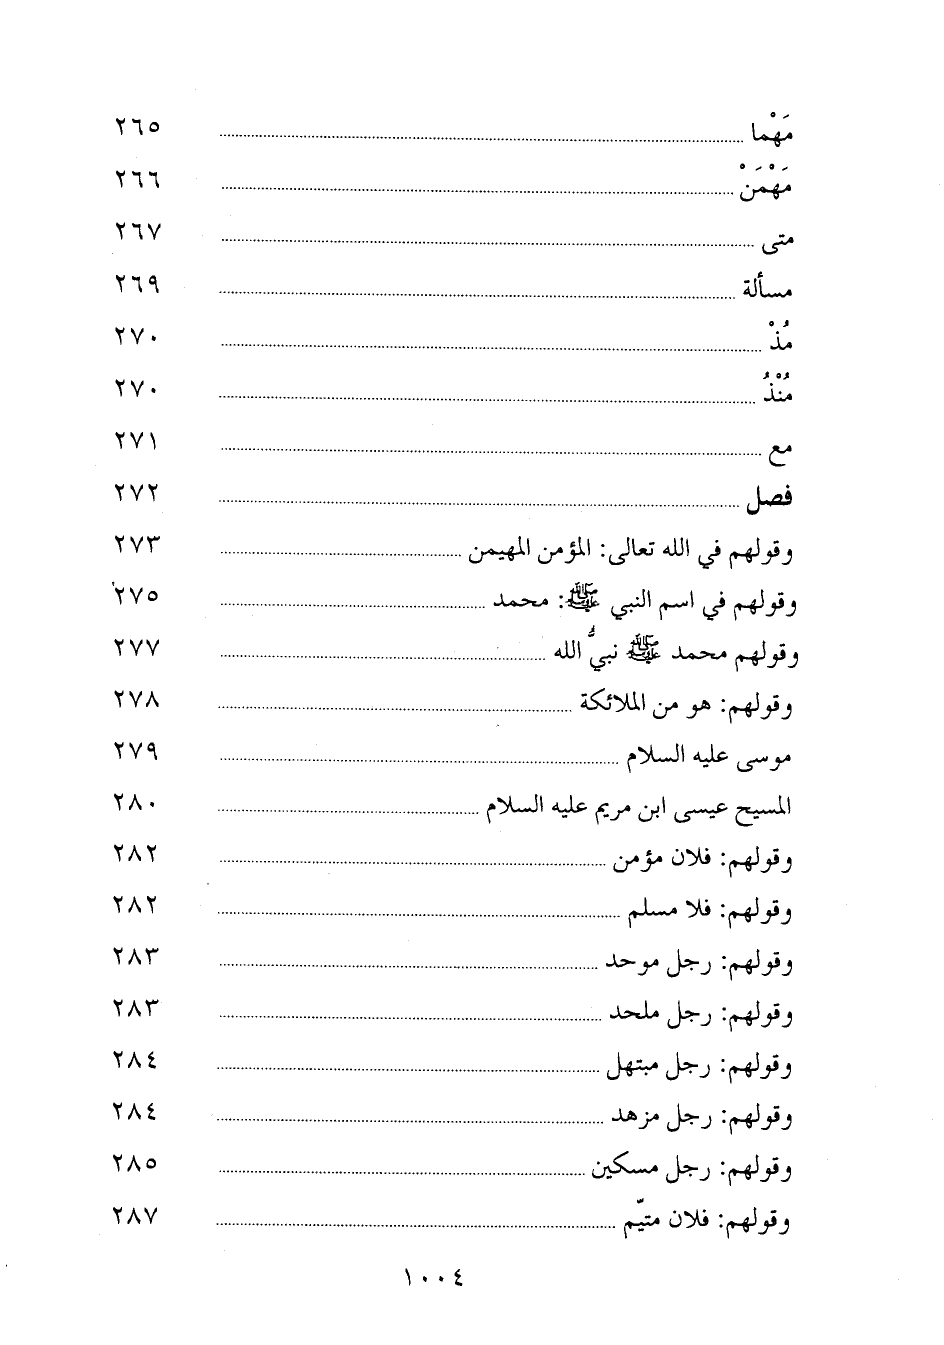 مَهْما ........ ٢٦٥
مَهْمَنْ ........ ٢٦٦
متى ........ ٢٦٧
مسألة ........ ٢٦٩
مُذْ ........ ٢٧٠
مُنْذُ ........ ٢٧٠
مع ........ ٢٧١
فصل ........ ٢٧٢
وقولهم في الله تعالى: المؤمن المهيمن ........ ٢٧٣
وقولهم في اسم النبي ﷺ: محمد ........ ٢٧٥
وقولهم محمد ﷺ نبيُّ الله ........ ٢٧٧
وقولهم: هو من الملائكة ........ ٢٧٨
موسى عليه السلام ........ ٢٧٩
المسيح عيسى ابن مريم عليه السلام ........ ٢٨٠
وقولهم: فلان مؤمن ........ ٢٨٢
وقولهم: فلا مسلم ........ ٢٨٢
وقولهم: رجل موحد ........ ٢٨٣
وقولهم: رجل ملحد ........ ٢٨٣
وقولهم: رجل مبتهل ........ ٢٨٤
وقولهم: رجل مزهد ........ ٢٨٤
وقولهم: رجل مسكين ........ ٢٨٥
وقولهم: فلان متيّم ........ ٢٨٧
١٠٠٤